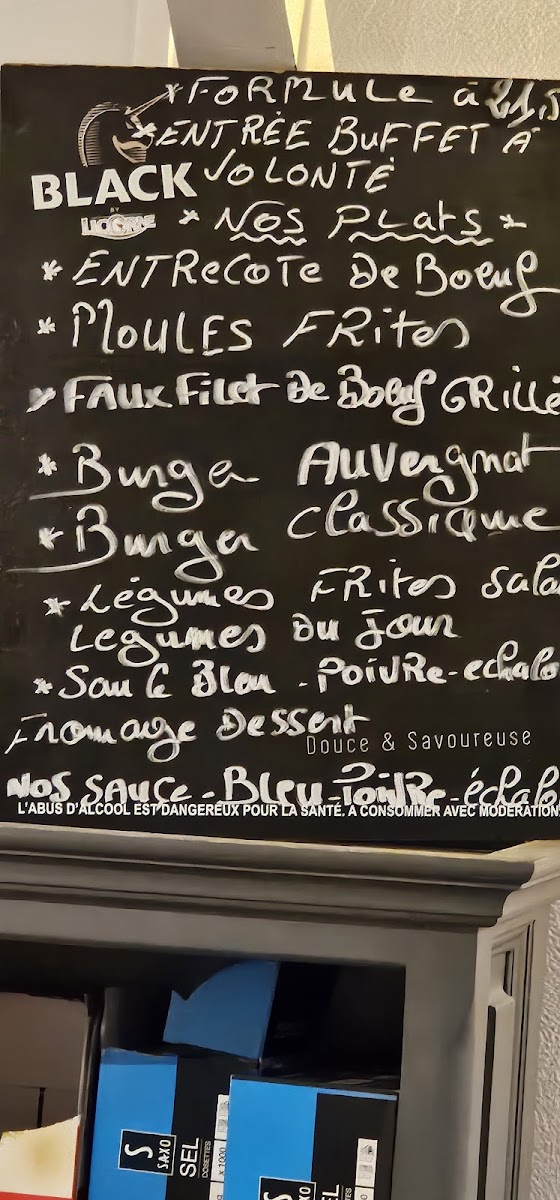 *FORMULE à 21,5
*ENTRÉE BUFFET A
VOLONTÉ
BLACK
BY
LICORNE
* NOS PLATS *
* ENTRECOTE DE BOEUF
* MOULES FRITES
* FAUX FILET DE BOEUF GRILLÉ
* Burger AUVergnat
* Burger classique
* Légumes FRITES Sala
Legumes DU JOUR
* Sauce Bleu - POIVRE - echalo
Fromage Dessert
Douce & Savoureuse
NOS SAUCE - BLEU - POIVRE - échalo
L'ABUS D'ALCOOL EST DANGEREUX POUR LA SANTÉ. A CONSOMMER AVEC MODÉRATION
S
SAXO
SEL
DOSETTES
x 1000
S
SAXO
SEL